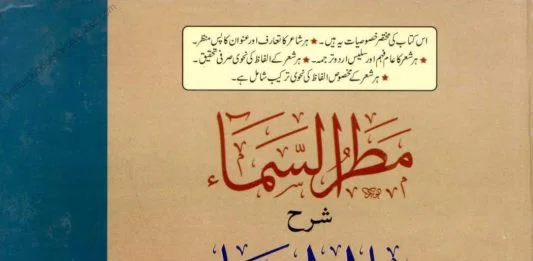 اس کتاب کی مختصر خصوصیات یہ ہیں۔ ★ ہر شاعر کا تعارف اور عنوان کا پس منظر۔
★ ہر شعر کا عام فہم اور سلیس اردو ترجمہ۔ ★ ہر شعر کے الفاظ کی نحوی صرفی تحقیق۔
★ ہر شعر کے مخصوص الفاظ کی نحوی ترکیب شامل ہے۔
مَطَرُ السَّمَآء
شرح